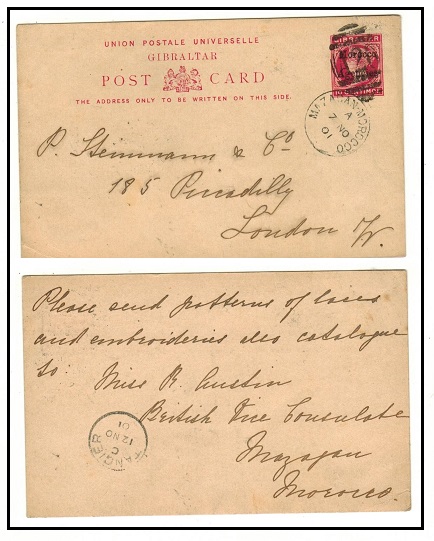 UNION POSTALE UNIVERSELLE
GIBRALTAR
POST CARD
THE ADDRESS ONLY TO BE WRITTEN ON THIS SIDE.
GIBRALTAR
Morocco
MAZAGAN-MOROCCO
A
7 NO
01
P. Steinmann & Co
185 Piccadilly
London W.
Please send patterns of laces
and embroideries also catalogue
to: Miss R. Austin
British Vice Consulate
Mazagan
Morocco.
TANGIER
C
12 NO
01